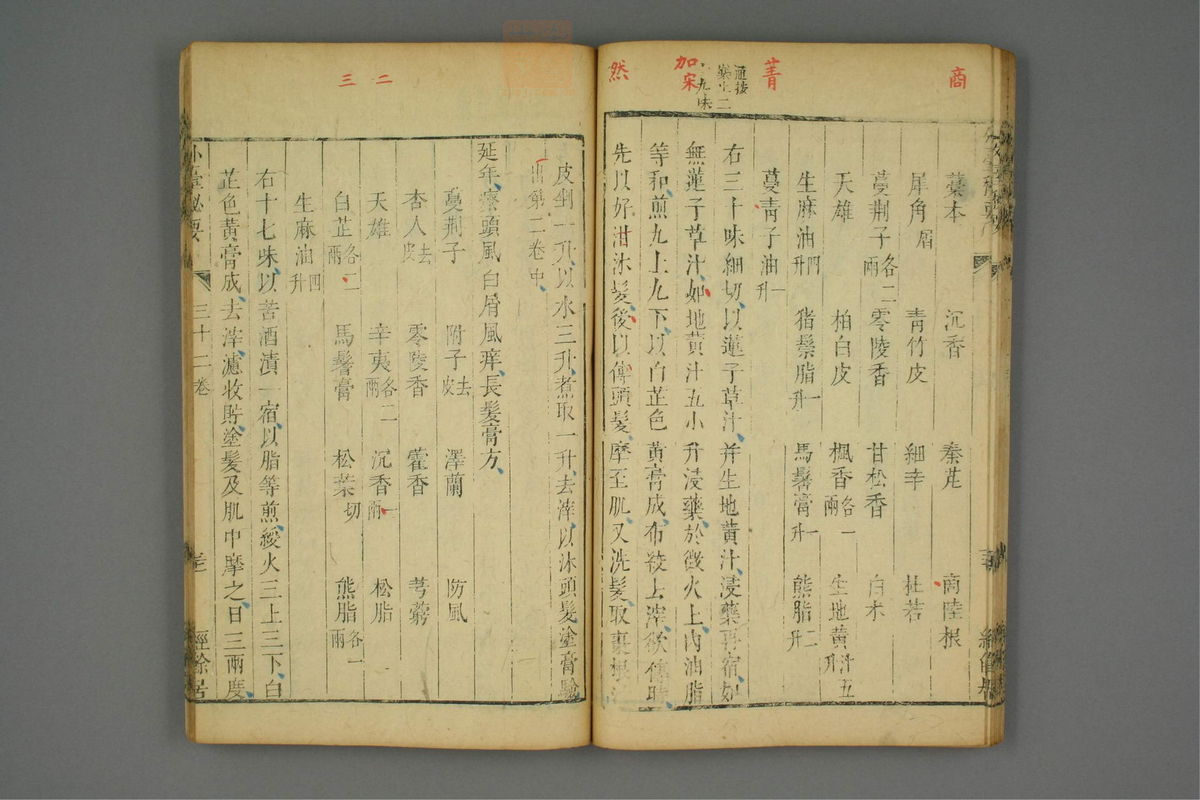 商
菁
通按
藥止二
九味
加
宋
然
藁本 沉香 秦艽 商陸根
犀角屑 青竹皮 細辛 杜若
蔓荆子各二兩 零陵香 甘松香 白朮
天雄 柏白皮 楓香各一兩 生地黄汁五升
生麻油四升 猪鬃脂一升 馬鬐膏一升 熊脂二升
蔓青子油一升
右三十味細切以蓮子草汁并生地黄汁浸藥再宿如
無蓮子草汁如地黄汁五小升浸藥於微火上内油脂
等和煎九上九下以白芷色黄膏成布絞去滓欲傅時
先以好泔沐髮後以傅頭髮摩至肌又洗髮取棗根
皮剉一升以水三升煮取一升去滓以沐頭髮塗膏驗
出第二卷中
二
三
延年療頭風白屑風痒長髮膏方
蔓荆子 附子去皮 澤蘭 防風
杏人去皮 零陵香 藿香 芎藭
天雄 辛夷各二兩 沉香一兩 松脂
白芷各二兩 馬鬐膏 松葉切 熊脂各一兩
生麻油四升
右十七味以苦酒漬一宿以脂等煎緩火三上三下白
芷色黄膏成去滓濾收貯塗髮及肌中摩之日三兩度
外臺秘要 三十二卷 經餘居